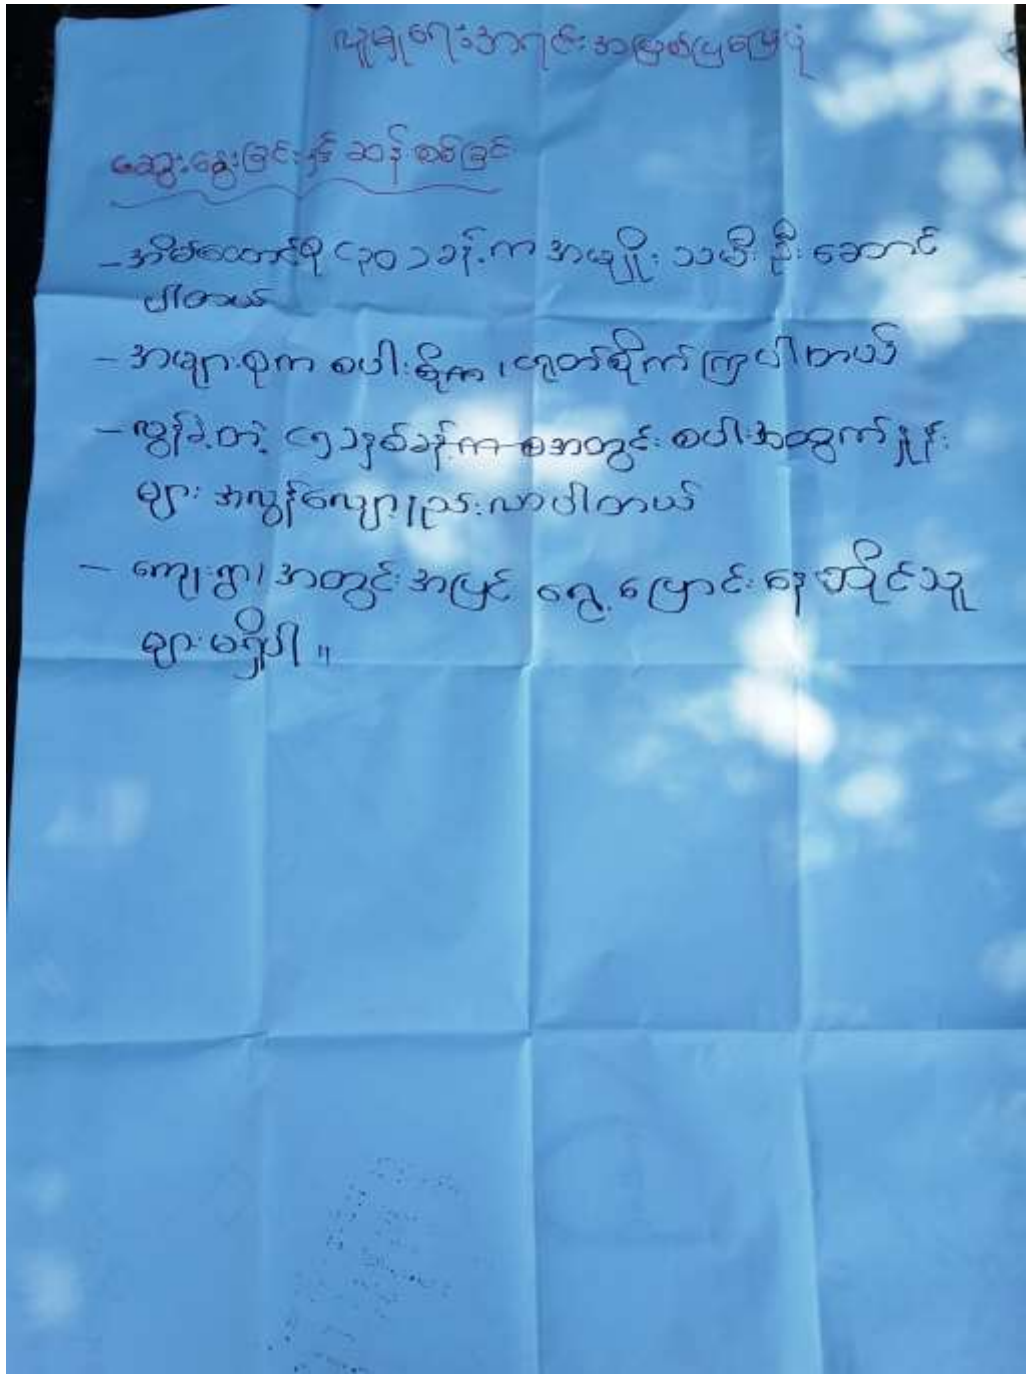 လူမှုရေးအရင်းအမြစ်ပြမြေပုံ
ဆွေးနွေးခြင်းနှင့် ဆန်းစစ်ခြင်း
- အိမ်ထောင်စု (၃၀) ခန့်က အမျိုးသမီးဦးဆောင်
ပါတယ်
- အများစုက စပါးစိုက်၊ ကြပါတယ်
- လွန်ခဲ့တဲ့ (၅) နှစ်ခန့်ကစအတွင်း စပါးအထွက်နှုန်း
များ အလွန်လျော့နည်းလာပါတယ်
- ကျေးရွာ၊ အတွင်းအပြင် ရွှေ့ပြောင်းနေထိုင်သူ
များမရှိပါ။